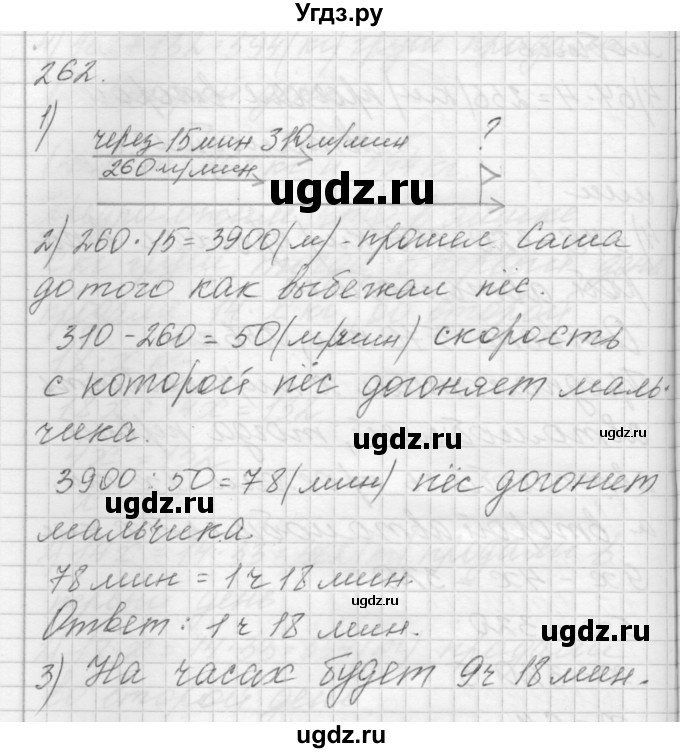 Угдз.ру
262.
1)
через 15 мин 310 м/мин ?
260 м/мин
ugdz.ru
2) 260 · 15 = 3900 (м) - прошел Саша
до того как выбежал пёс.
310 - 260 = 50 (м/мин) скорость
с которой пёс догоняет маль-
чика.
ugdz.ru
ugdz.ru
3900 : 50 = 78 (мин) пёс догонит
ugdz.ru
мальчика
78 мин = 1 ч 18 мин.
ugdz.ru
Ответ: 1 ч 18 мин.
ugdz.ru
3) На часах будет 9 ч 18 мин.
ugdz.ru